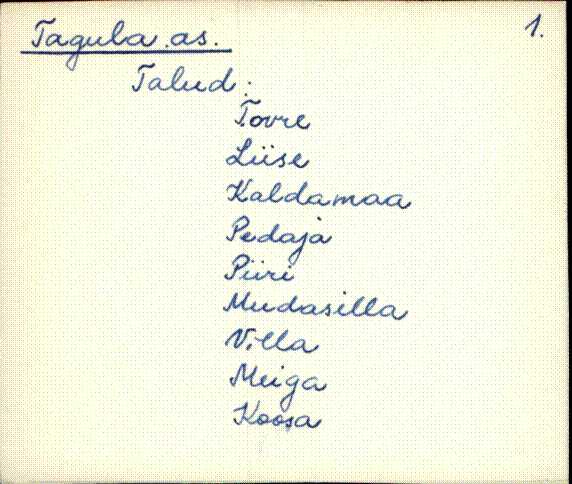 Tagula as. 1.
Talud:
Tovre
Liise
Kaldamaa
Pedaja
Piiri
Mudasilla
Villa
Meiga
Koosa